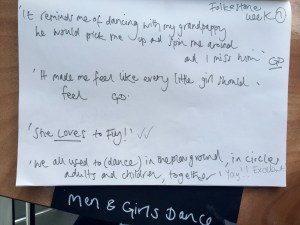 Folkestone
week 1
'It reminds me of dancing with my grandpappy
he would pick me up and spin me around
and I miss him' GD
'It made me feel like every little girl should
feel GD.
'She LOVES to Fly!'
'We all used to (dance) in the playground, in circles,
adults and children, together' Yay!! Excellent
MEN & GIRLS DANCE